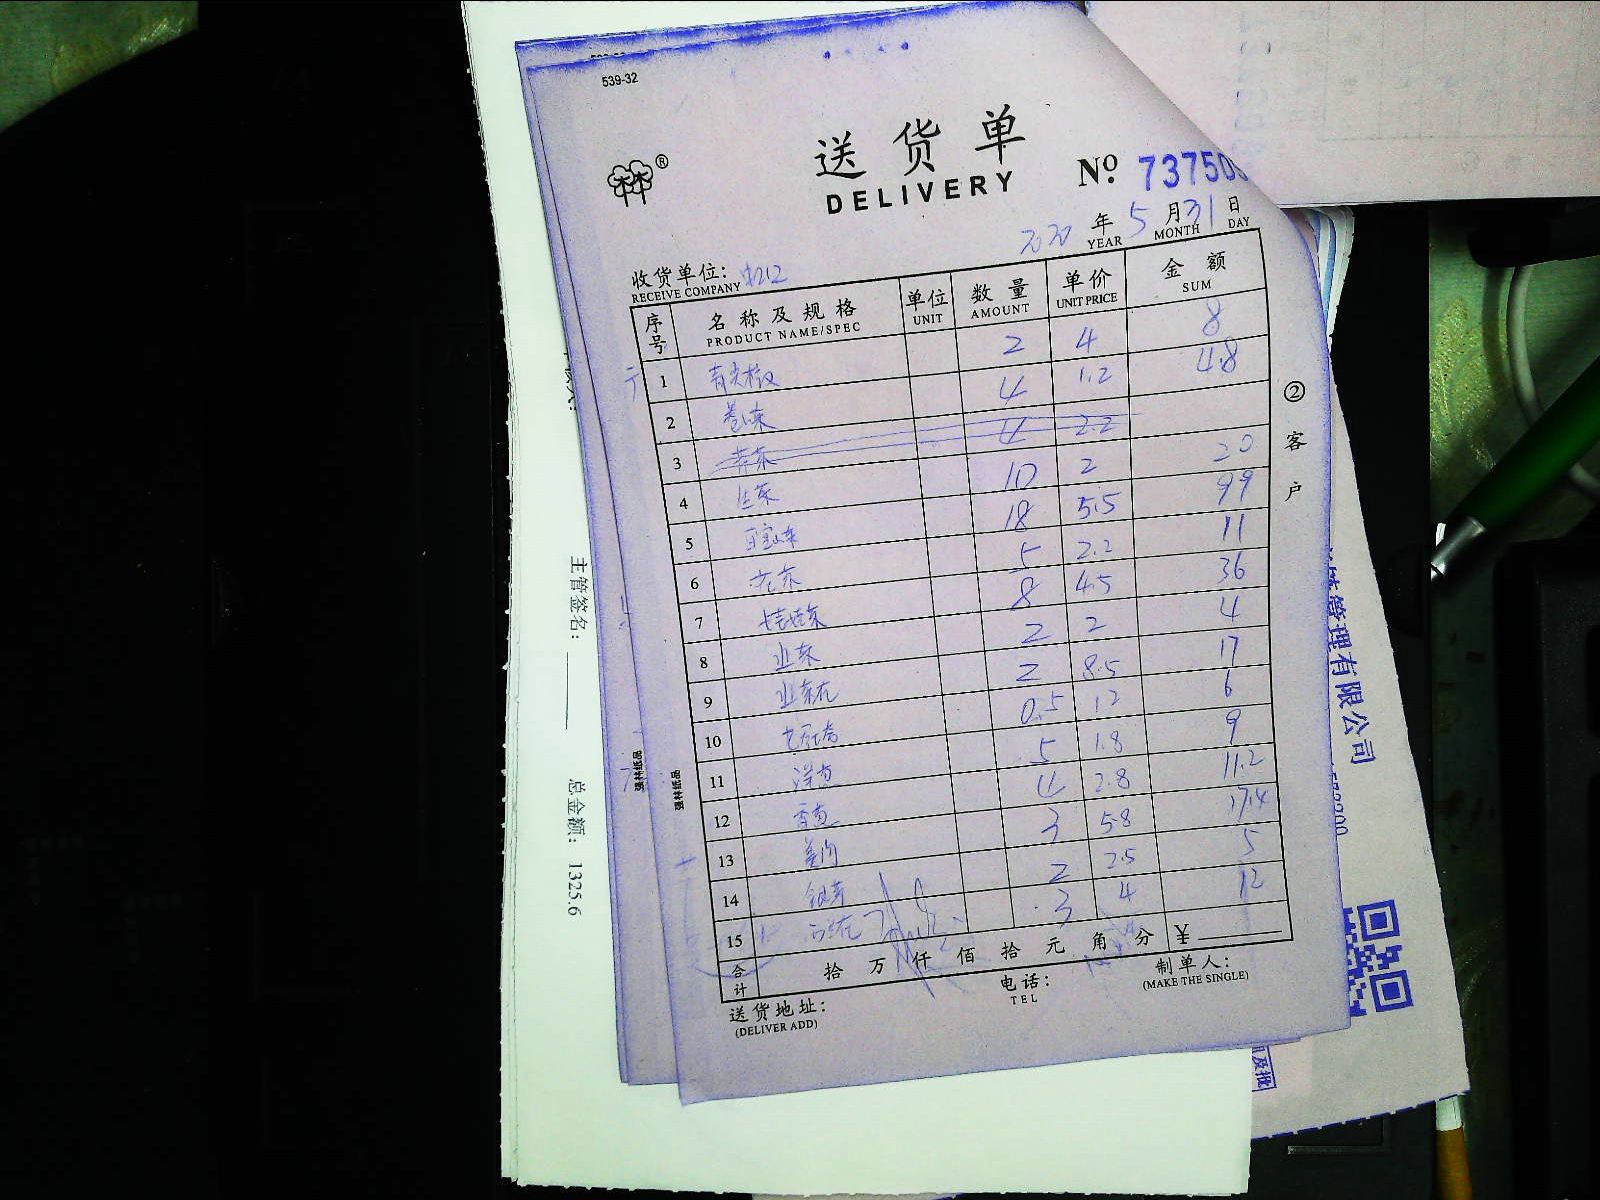 539-32
送货单
DELIVERY
№ 73750
2020 年 5 月 31 日
YEAR MONTH DAY
收货单位:
RECEIVE COMPANY
序号 名称及规格 单位 数量 单价 金额
PRODUCT NAME/SPEC UNIT AMOUNT UNIT PRICE SUM
1 青尖椒 2 4 8
2 4 1.2 4.8
3 4 2.2
4 生菜 10 2 20
5 18 5.5 99
6 花菜 5 2.2 11
7 娃娃菜 8 4.5 36
8 2 2 4
9 2 8.5 17
10 0.5 12 6
11 洋芋 5 1.8 9
12 4 2.8 11.2
13 3 5.8 17.4
14 银芽 2 2.5 5
15 3 4 12
合计 拾 万 仟 佰 拾 元 角 分 ¥
送货地址:
(DELIVER ADD)
电话:
TEL
制单人:
(MAKE THE SINGLE)
②客户
强林纸品
强林纸品
主管签名:
总金额: 1325.6
管理有限公司